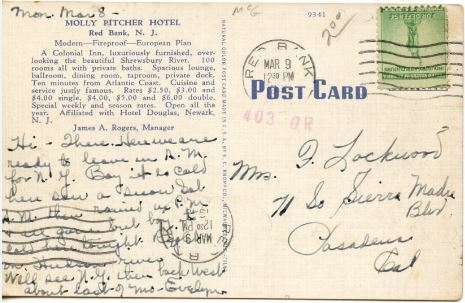 Mon. Mar 8 -
MOLLY PITCHER HOTEL
Red Bank, N. J.
Modern—Fireproof—European Plan
A Colonial Inn, luxuriously furnished, over-
looking the beautiful Shrewsbury River. 100
rooms all with private baths. Spacious lounge,
ballroom, dining room, taproom, private dock.
Ten minutes from Atlantic Coast. Cuisine and
service justly famous. Rates $2.50, $3.00 and
$4.00 single, $4.00, $5.00 and $6.00 double.
Special weekly and season rates. Open all the
year. Affiliated with Hotel Douglas, Newark,
N. J.
James A. Rogers, Manager
Hi - There. Here we are
ready to leave in A.M.
for N.Y. Boy it is cold
here saw a snow Sat
A.M. then rained in P.M.
all gone but boy
cold here tonight. Right
on river
Will see N.Y. then back west
about last of mo - Evelyn.
9341
2.00
RED BANK
MAR 9
12 30 PM
N.J.
POST CARD
403 OR
Mrs. F. Lockwood
71 So Sierra Madre
Blvd
Pasadena
Cal
RED BANK
MAR 9
12 30 PM